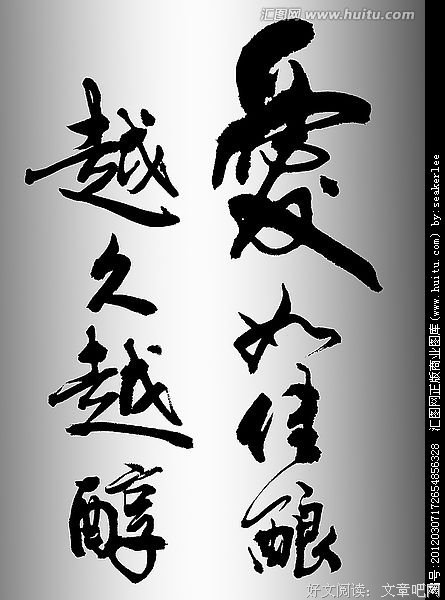 汇图网 www.huitu.com
愛如佳酿
越久越醇
好文阅读：文章吧网
号:20120307172654856328 汇图网正版商业图库(www.huitu.com) by:seakerlee